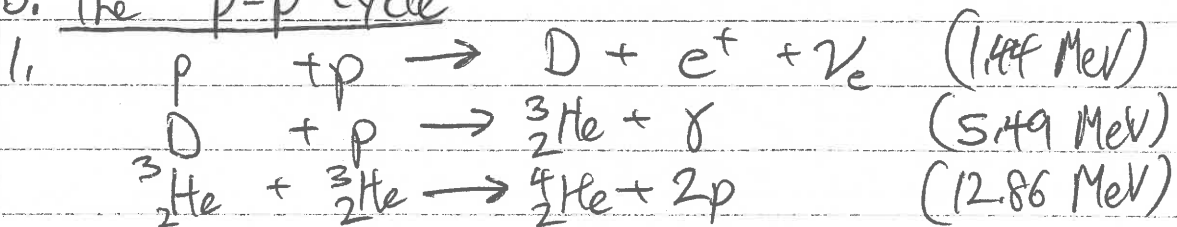 The p-p cycle
1. p + p → D + e⁺ + νₑ (1.44 MeV)
D + p → ³₂He + γ (5.49 MeV)
³₂He + ³₂He → ⁴₂He + 2p (12.86 MeV)